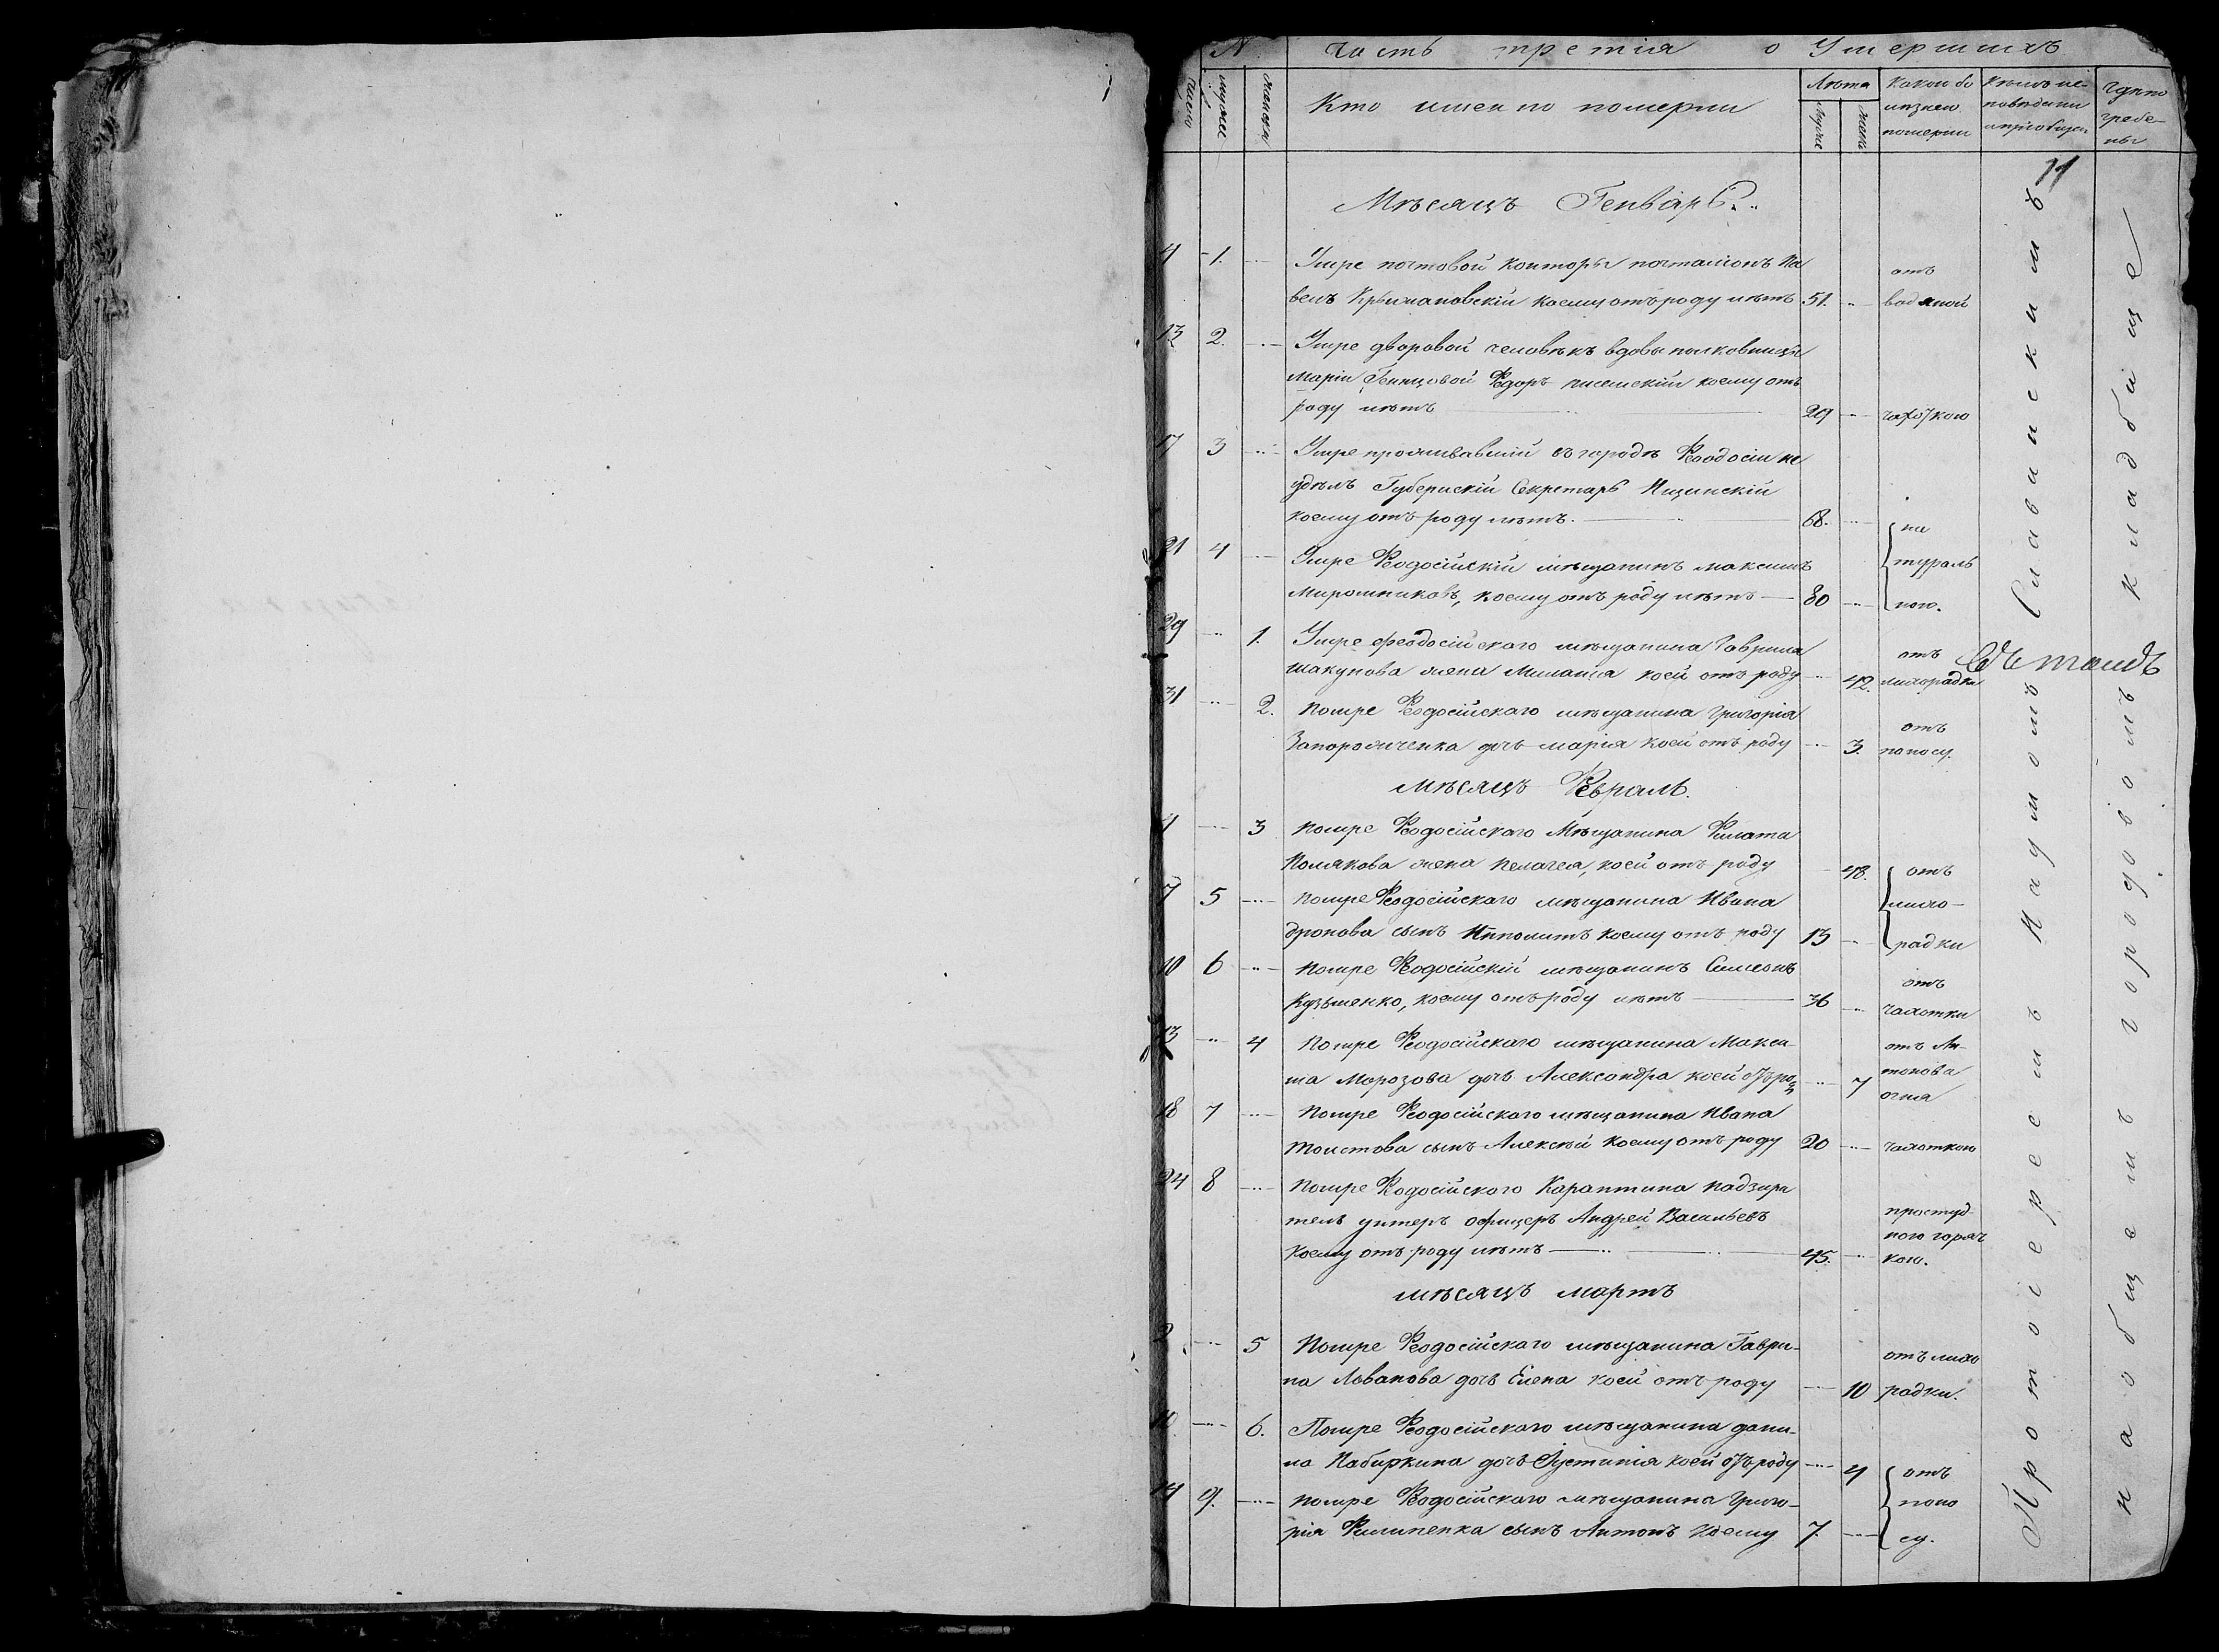 N Часть третія о Умершихъ
Число мужес женска Кто именно померли Лѣта Какою бо Кѣмъ ис Гдѣ по
лѣзнею повѣданы гребе-
Мужс Женс померли и пріобщен ны
11
Мѣсяцъ Генварь.
4 1. Умре почтовой конторы почталіонъ Па отъ
велъ Крыжановскій коему отъ роду лѣтъ 51. водяной
13 2. Умре дворовой человѣкъ вдовы полковницы
Маріи Федоръ коему отъ
роду лѣтъ 29 чахоткою
17 3 Умре проживавшій въ городѣ Феодосіи не
удѣлъ Губернскій Секретарь
коему отъ роду лѣтъ. 68. на
21 4 Умре Феодосійскій мѣщанинъ Максимъ тураль
Мирошниковъ, коему отъ роду лѣтъ 80 ною.
29 1. Умре феодосійскаго мѣщанина Гаврила отъ
Шакунова жена Миланія коей отъ роду 42. лихорадки
31 2. Помре Феодосійскаго мѣщанина Григорія отъ
Запорожченка дочь Марія коей отъ роду 3. поносу.
Мѣсяцъ Февраль.
4 3 Помре Феодосійскаго Мѣщанина Филата
Полякова жена Пелагея, коей отъ роду 48. отъ
7 5 Помре Феодосійскаго мѣщанина Ивана лихо-
Дронова сынъ Ипполитъ коему отъ роду 13 радки
10 6 Помре Феодосійскій мѣщанинъ Симеонъ отъ
Кузьменко, коему отъ роду лѣтъ 36 чахотки
13 4 Помре Феодосійскаго мѣщанина Макси- отъ Ан
ма Морозова дочь Александра коей отъ роду 7 тонова
огня
18 7 Помре Феодосійскаго мѣщанина Ивана
Толстова сынъ Алексѣй коему отъ роду 20 чахоткою
24 8 Помре Феодосійскаго Карантина надзира
тель унтеръ офицеръ Андрей Васильевъ простуд-
ною горяч
коему отъ роду лѣтъ 45. кою.
Мѣсяцъ Мартъ
2 5 Помре Феодосійскаго мѣщанина Гаври- отъ лихо
ла Лованова дочь Елена коей отъ роду 10 радки.
10 6. Помре Феодосійскаго мѣщанина Дани-
ла Набиркина дочь Іустинія коей отъ роду 4 отъ
14 9. Помре Феодосійскаго мѣщанина Григо- поно
рія Филипенка сынъ Антонъ коему 7. су.
Протоіереемъ Наумомъ Славинскимъ
на общемъ городовомъ кладбище